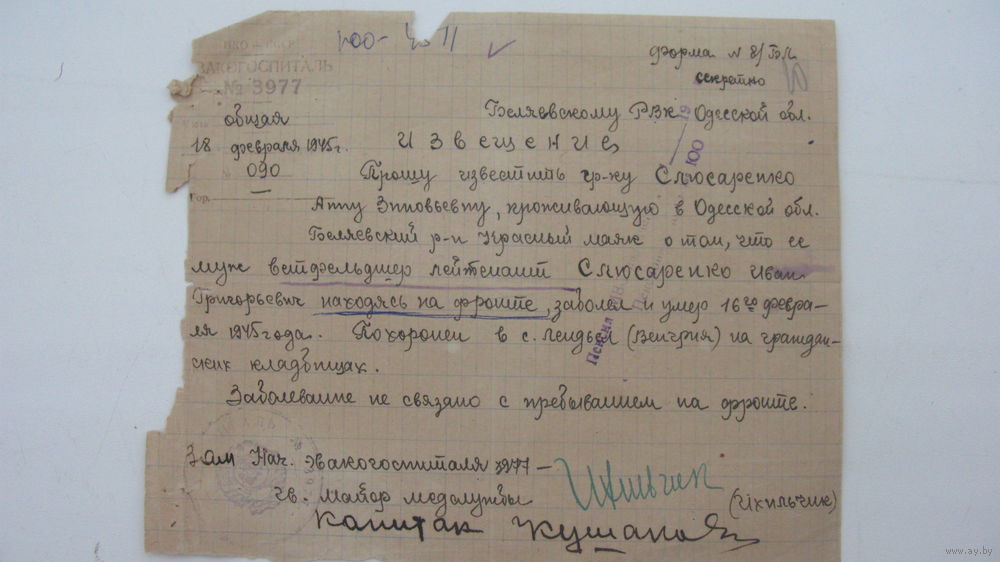 НКО – СССР
ЭВАКОГОСПИТАЛЬ
№ 3977
общая
18 февраля 1945г.
№ 090
Гор.
форма № 8/Б.М.
секретно
Беляевскому РВК Одесской обл.
Извещение
Прошу известить гр-ку Слюсаренко
Анну Зиновьевну, проживающую в Одесской обл.
Беляевский р-н Красный маяк о том, что ее
муж ветфельдшер лейтенант Слюсаренко Иван
Григорьевич находясь на фронте, заболел и умер 16го февра-
ля 1945 года. Похоронен в с. (Венгрия) на граждан-
ских кладбищах.
Заболевание не связано с пребыванием на фронте.
Зам Нач. Эвакогоспиталя 3977 –
гв. майор медслужбы
(Ихильчик)
капитан
www.ay.by